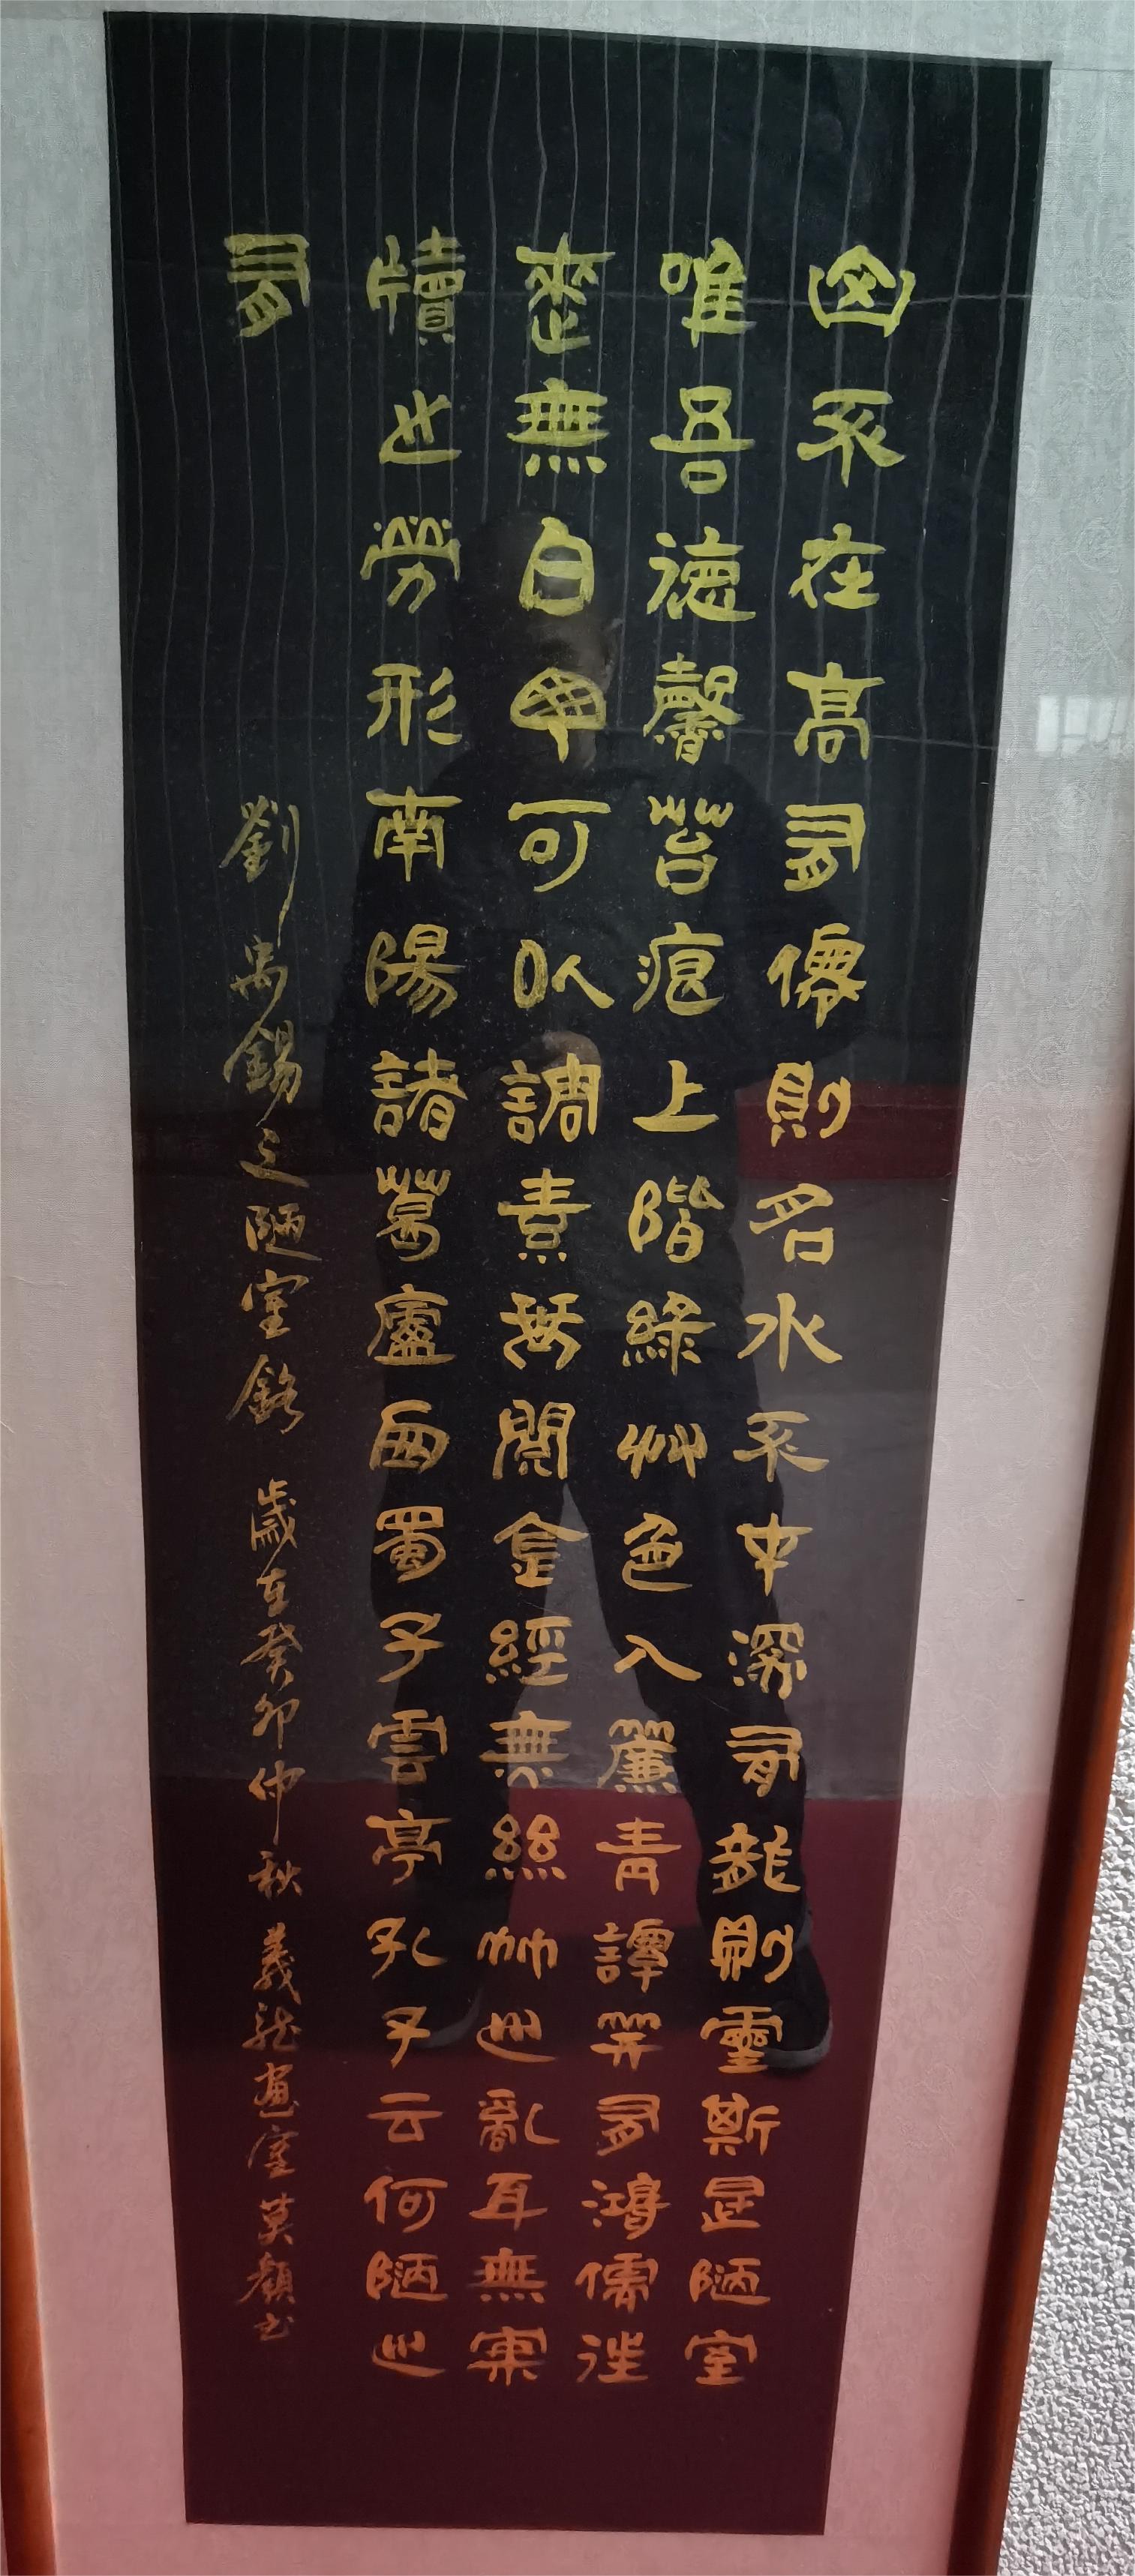 山不在高有僊則名水不在深有龍則靈斯是陋室
唯吾德馨苔痕上階綠艸色入簾青譚笑有鴻儒往
來無白丁可以調素琴閱金經無絲竹之亂耳無案
牘之勞形南陽諸葛廬西蜀子雲亭孔子云何陋之
有
劉禹錫之陋室銘 歲在癸卯仲秋 義龍画室 莫顏书